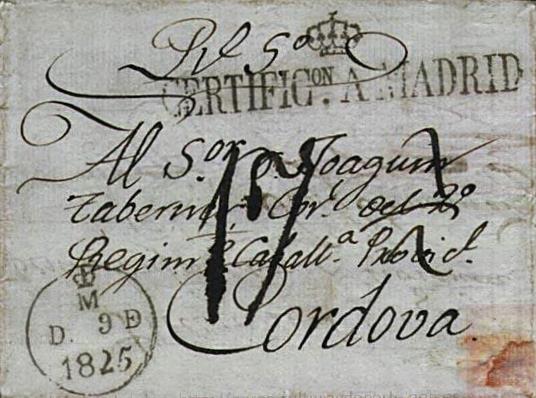 Rl. Sº
CERTIFICON. A MADRID
Al S.or D. Joaquin
Cor.l del 2º
Regim.to Caball.a Provid.
Cordova
M
D. 9 D
1825